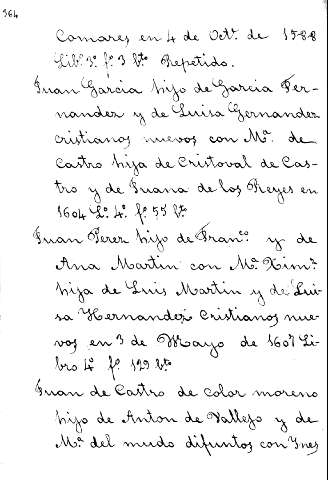 364
Comares en 4 de Octe. de 1588
Libo. 3º. fº. 3 bto. Repetido.
Juan Garcia hijo de Garcia Fer-
nandez y de Luisa Gernandez
cristianos nuevos con Mª. de
Castro hija de Cristoval de Cas-
tro y de Juana de los Reyes en
1604 Lº. 4º. fº. 55 bto
Juan Perez hijo de Franco. y de
Ana Martin con Mª. Ximz.
hija de Luis Martin y de Lui-
sa Hernandez Cristianos nue-
vos en 3 de Mayo de 1607 Li-
bro 4º. fº. 129 bto
Juan de Castro de color moreno
hijo de Anton de Vallejo y de
Mª. del mudo difuntos con Ines